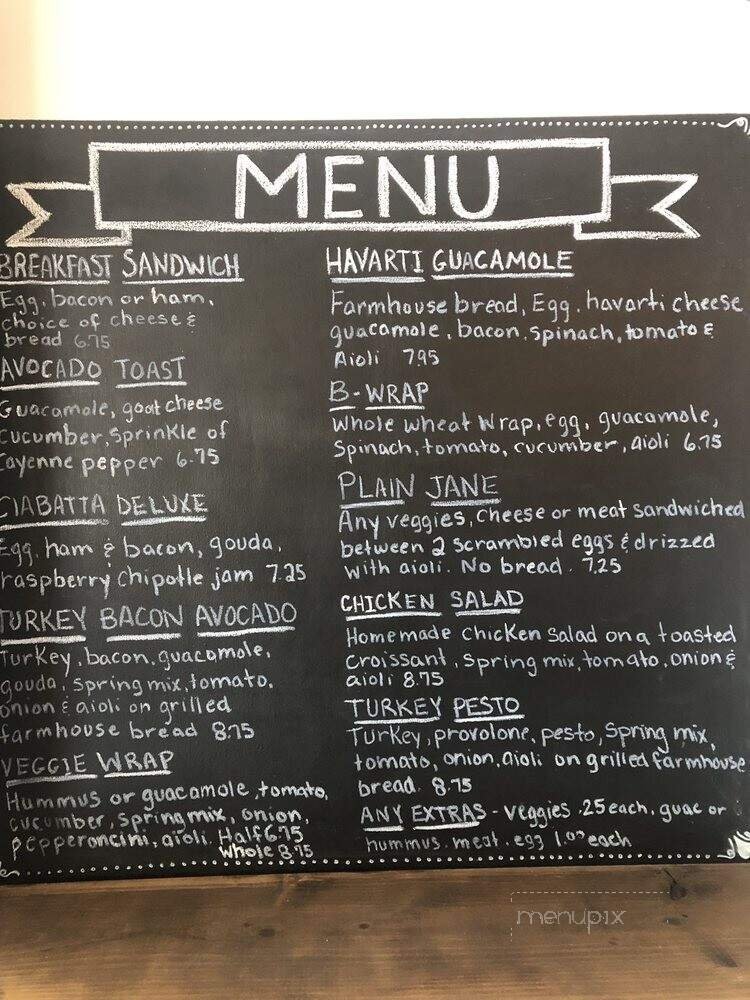 MENU
BREAKFAST SANDWICH
Egg, bacon or ham,
choice of cheese &
bread 6.75
AVOCADO TOAST
Guacamole, goat cheese
cucumber, sprinkle of
cayenne pepper 6.75
CIABATTA DELUXE
Egg, ham & bacon, gouda,
raspberry chipotle jam 7.25
TURKEY BACON AVOCADO
Turkey, bacon, guacamole,
gouda, spring mix, tomato,
onion & aioli on grilled
farmhouse bread 8.75
VEGGIE WRAP
Hummus or guacamole, tomato,
cucumber, spring mix, onion,
pepperoncini, aioli. Half 6.75
Whole 8.75
HAVARTI GUACAMOLE
Farmhouse bread, Egg, havarti cheese
guacamole, bacon, spinach, tomato &
Aioli 7.95
B-WRAP
Whole wheat wrap, egg, guacamole,
Spinach, tomato, cucumber, aioli 6.75
PLAIN JANE
Any veggies, cheese or meat sandwiched
between 2 scrambled eggs & drizzed
with aioli. No bread. 7.25
CHICKEN SALAD
Homemade chicken salad on a toasted
Croissant, spring mix, tomato, onion &
aioli 8.75
TURKEY PESTO
Turkey, provolone, pesto, Spring mix,
tomato, onion, aioli on grilled farmhouse
bread. 8.75
ANY EXTRAS - veggies .25 each, guac or
hummus, meat, egg 1.00 each
menupix